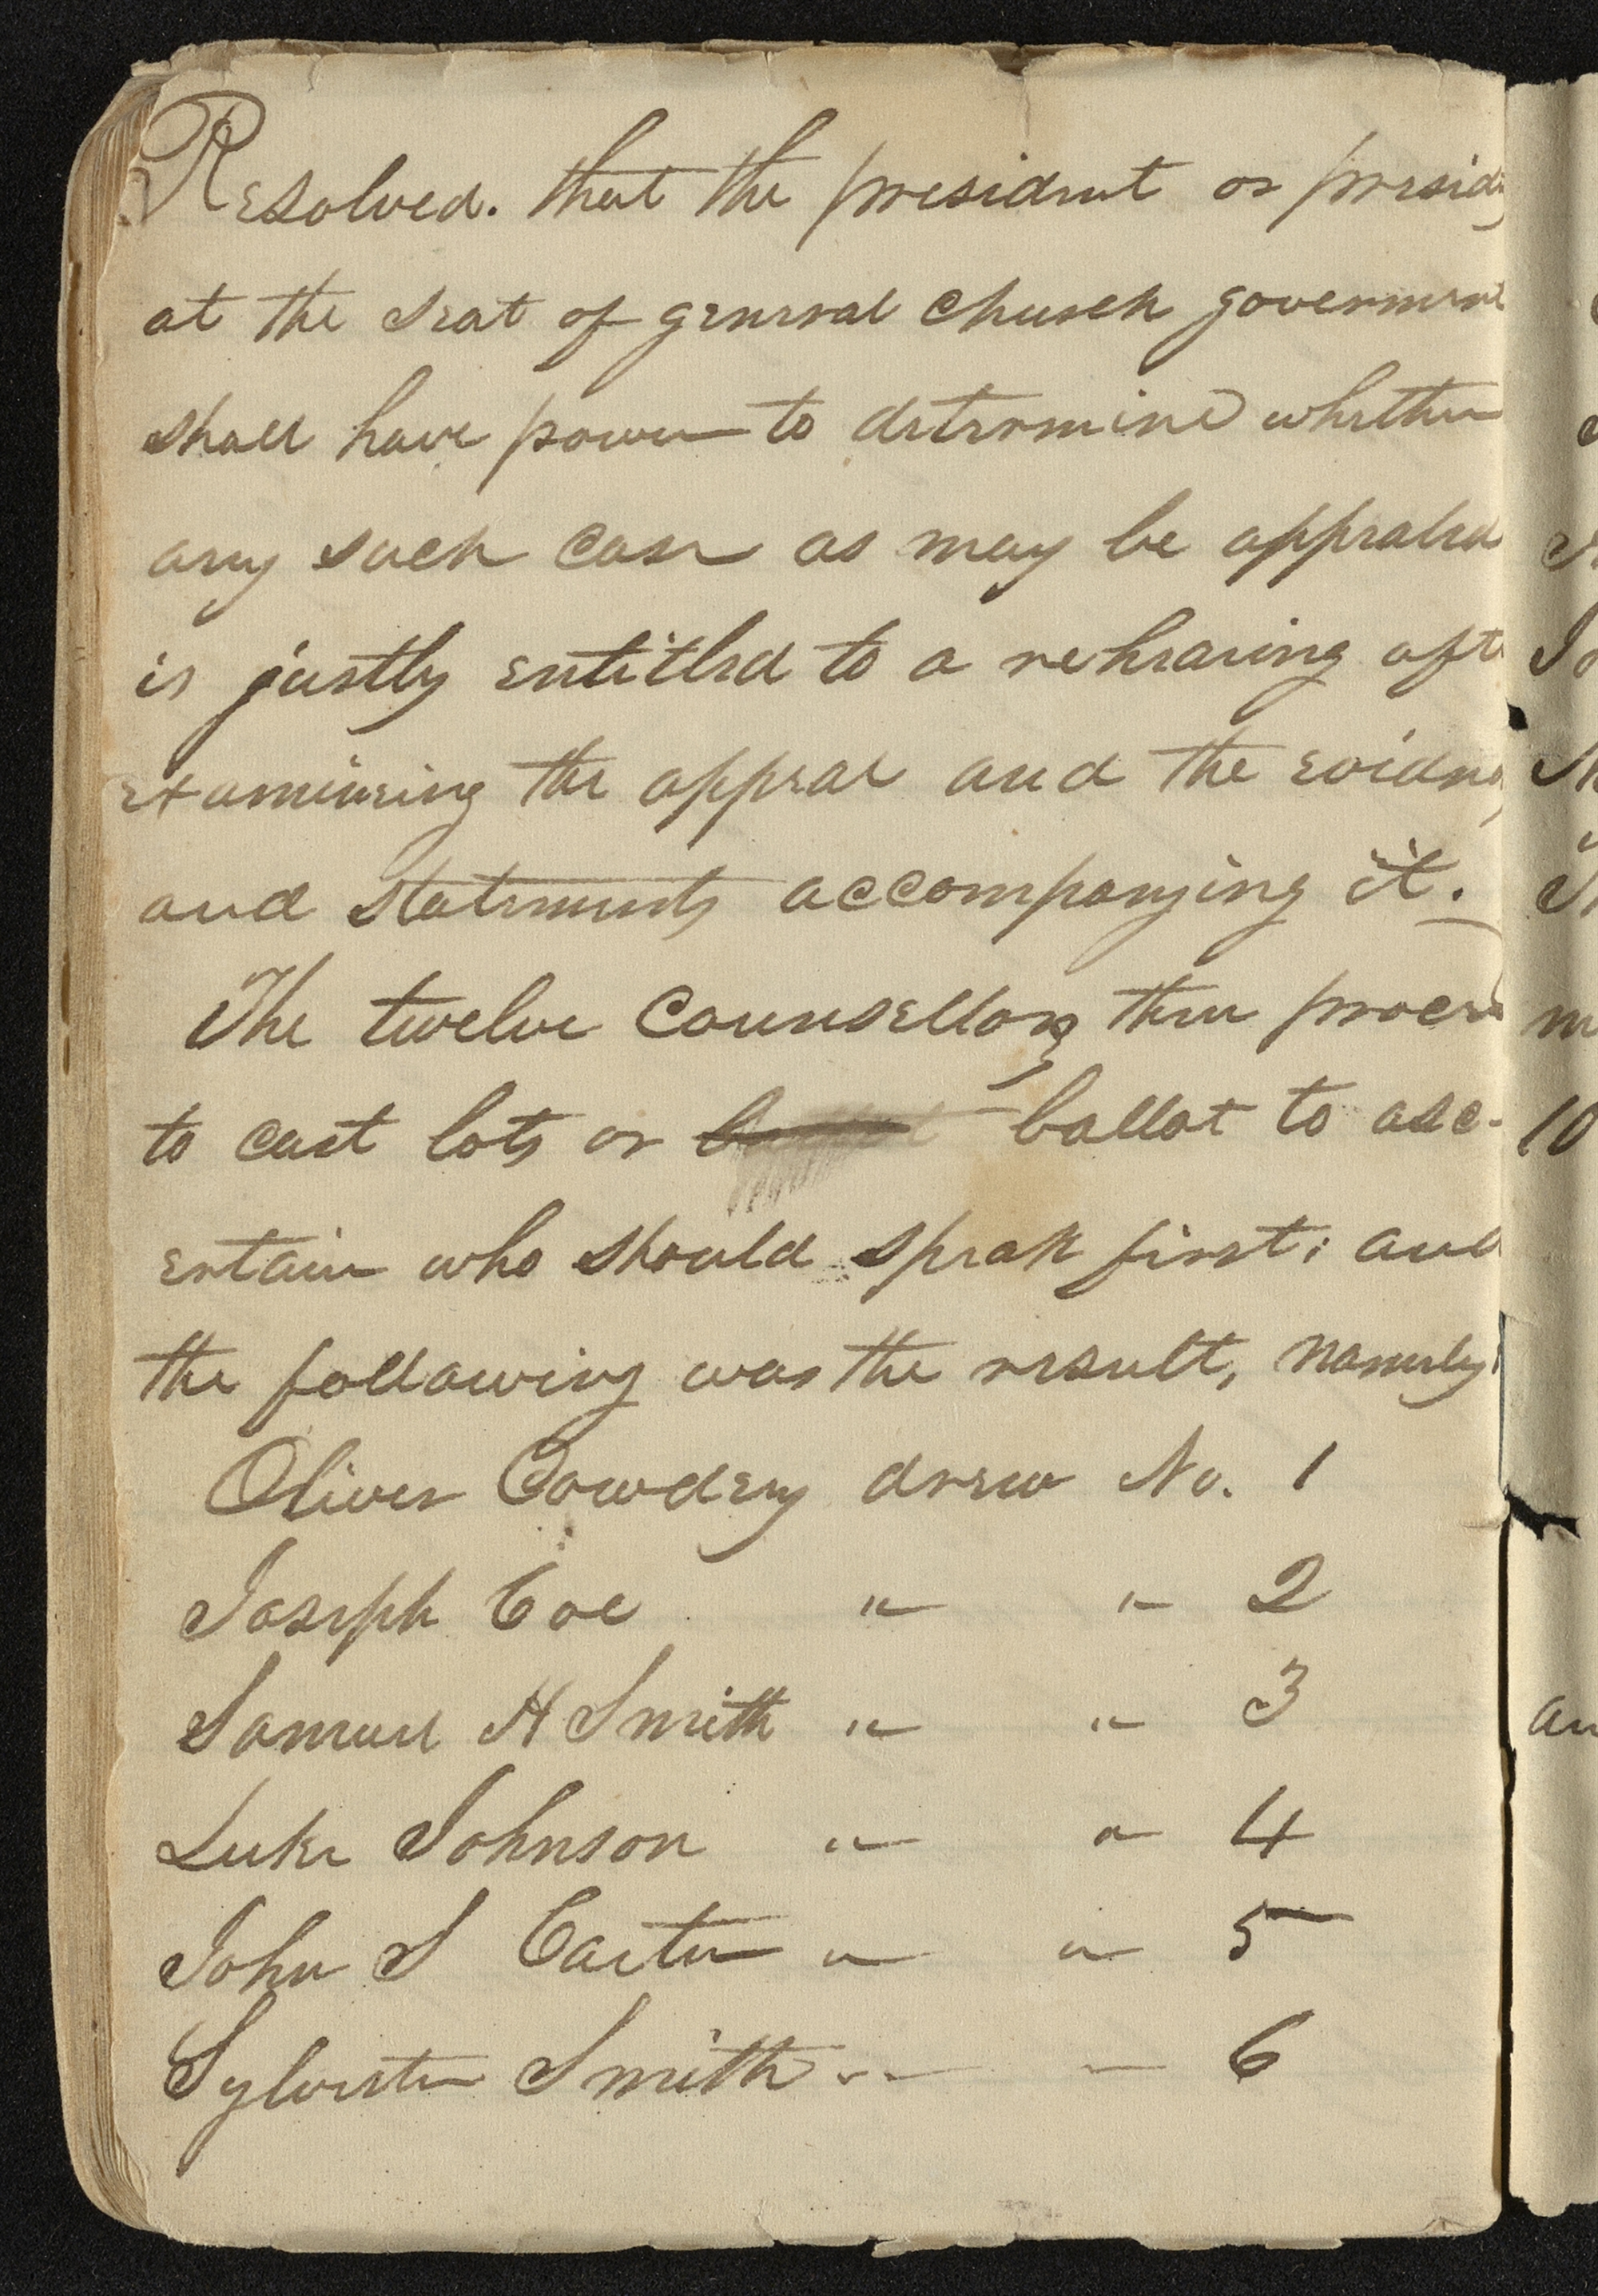 Resolved. that the president or presid
at the seat of general church government
shall have power to determine whether
any such case as may be appealed
is justly entitled to a rehearing afte
examineing the appeal and the eviden
and statements accompanying it.
The twelve Counsellors then proce
to cast lots or ballot to asc-
ertain who should speak first; and
the following was the result, namely;
Oliver Cowdery drew No. 1
Joseph Coe " " 2
Samuel H Smith " " 3
Luke Johnson " " 4
John S Carter " " 5
Sylvester Smith " " 6
10